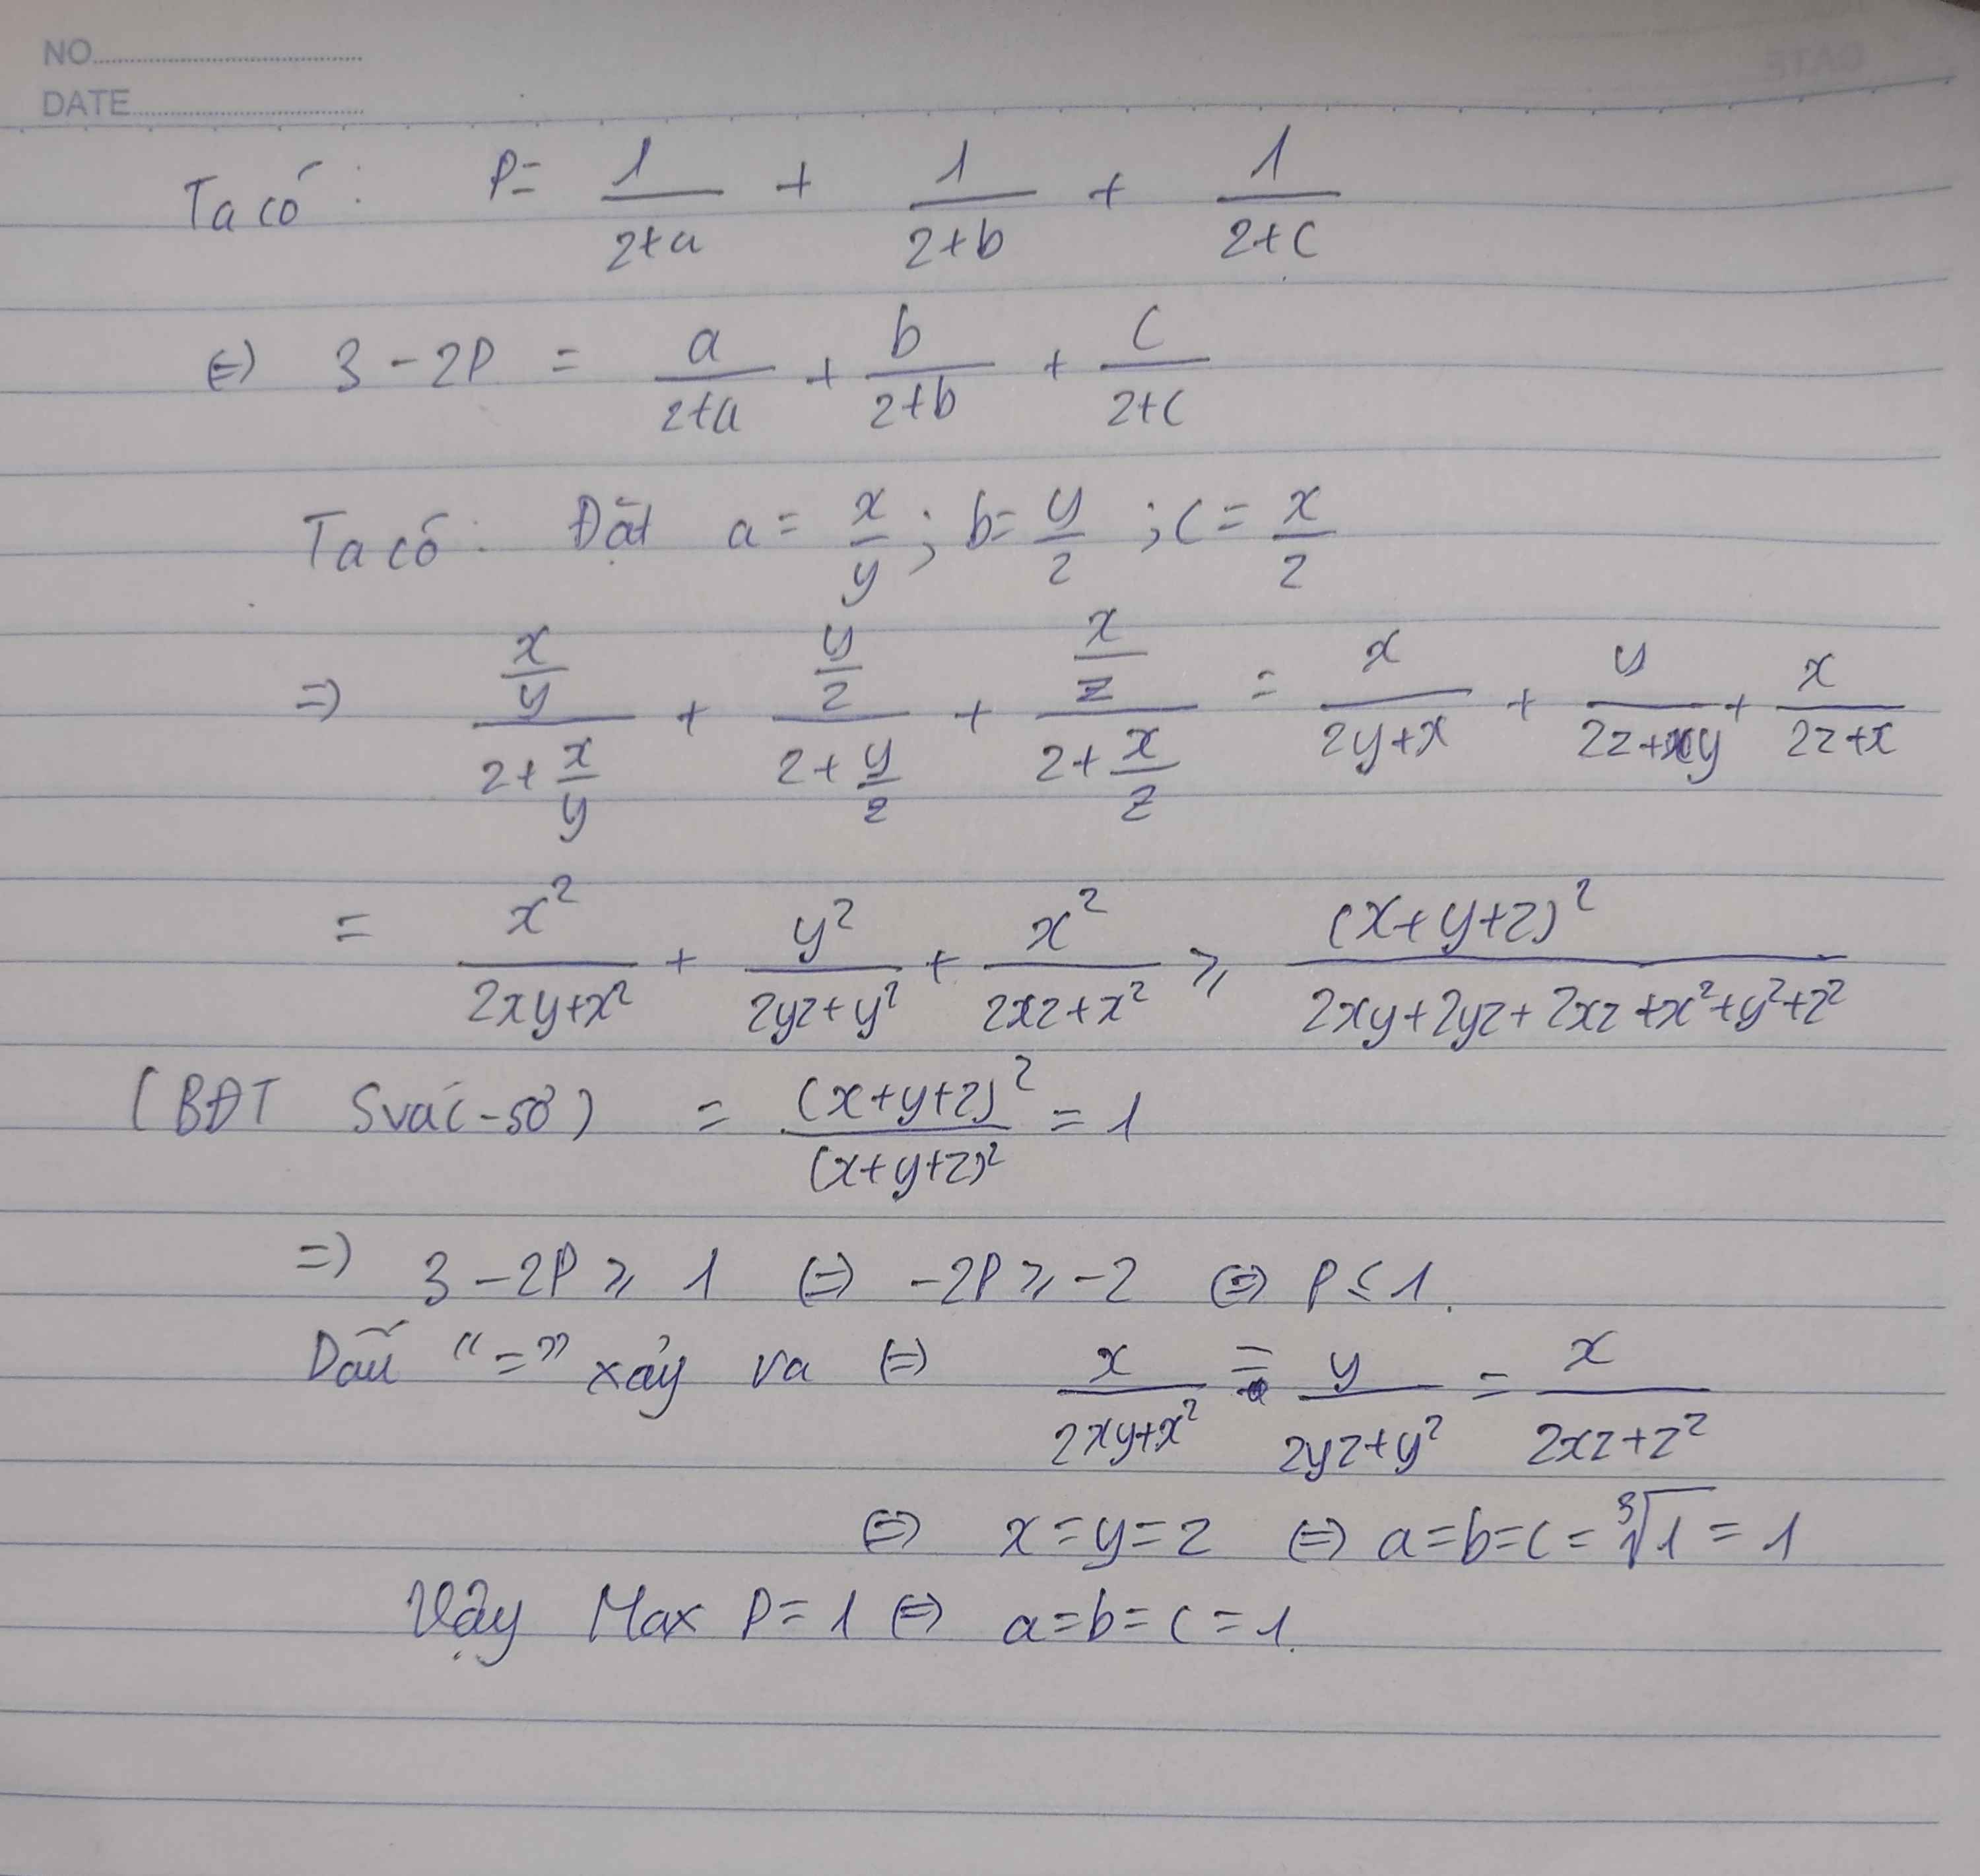 NO.
DATE
Ta có: P = 1/(2+a) + 1/(2+b) + 1/(2+c)
(=) 3 - 2P = a/(2+a) + b/(2+b) + c/(2+c)
Ta có: Đặt a = x/y ; b = y/z ; c = x/z
=) (x/y)/(2 + x/y) + (y/z)/(2 + y/z) + (x/z)/(2 + x/z) = x/(2y+x) + y/(2z+y) + x/(2z+x)
= x²/(2xy+x²) + y²/(2yz+y²) + x²/(2xz+x²) ≥ (x+y+z)²/(2xy+2yz+2xz+x²+y²+z²)
(BĐT Svác-sơ) = (x+y+z)²/(x+y+z)² = 1
=) 3 - 2P ≥ 1 (=) -2P ≥ -2 (=) P ≤ 1.
Dấu "=" xảy ra (=) x/(2xy+x²) = y/(2yz+y²) = x/(2xz+z²)
(=) x = y = z (=) a = b = c = ³√1 = 1
Vậy Max P = 1 (=) a = b = c = 1.